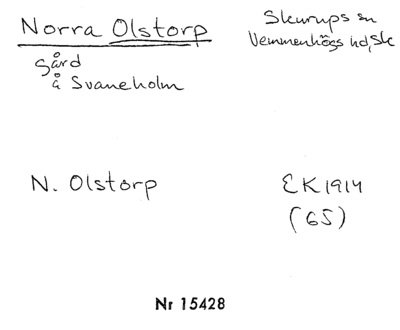 Norra Olstorp
gård
å Svaneholm
Skurups sn
Vemmenhögs hd, Sk
N. Olstorp
EK 1914
(65)
Nr 15428